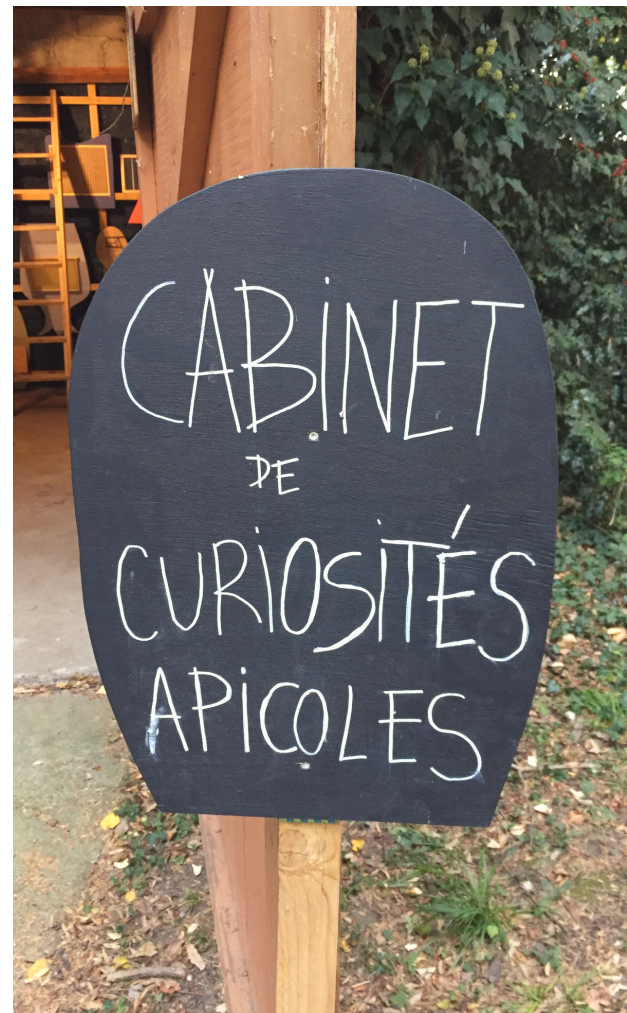 CABINET
DE
CURIOSITÉS
APICOLES